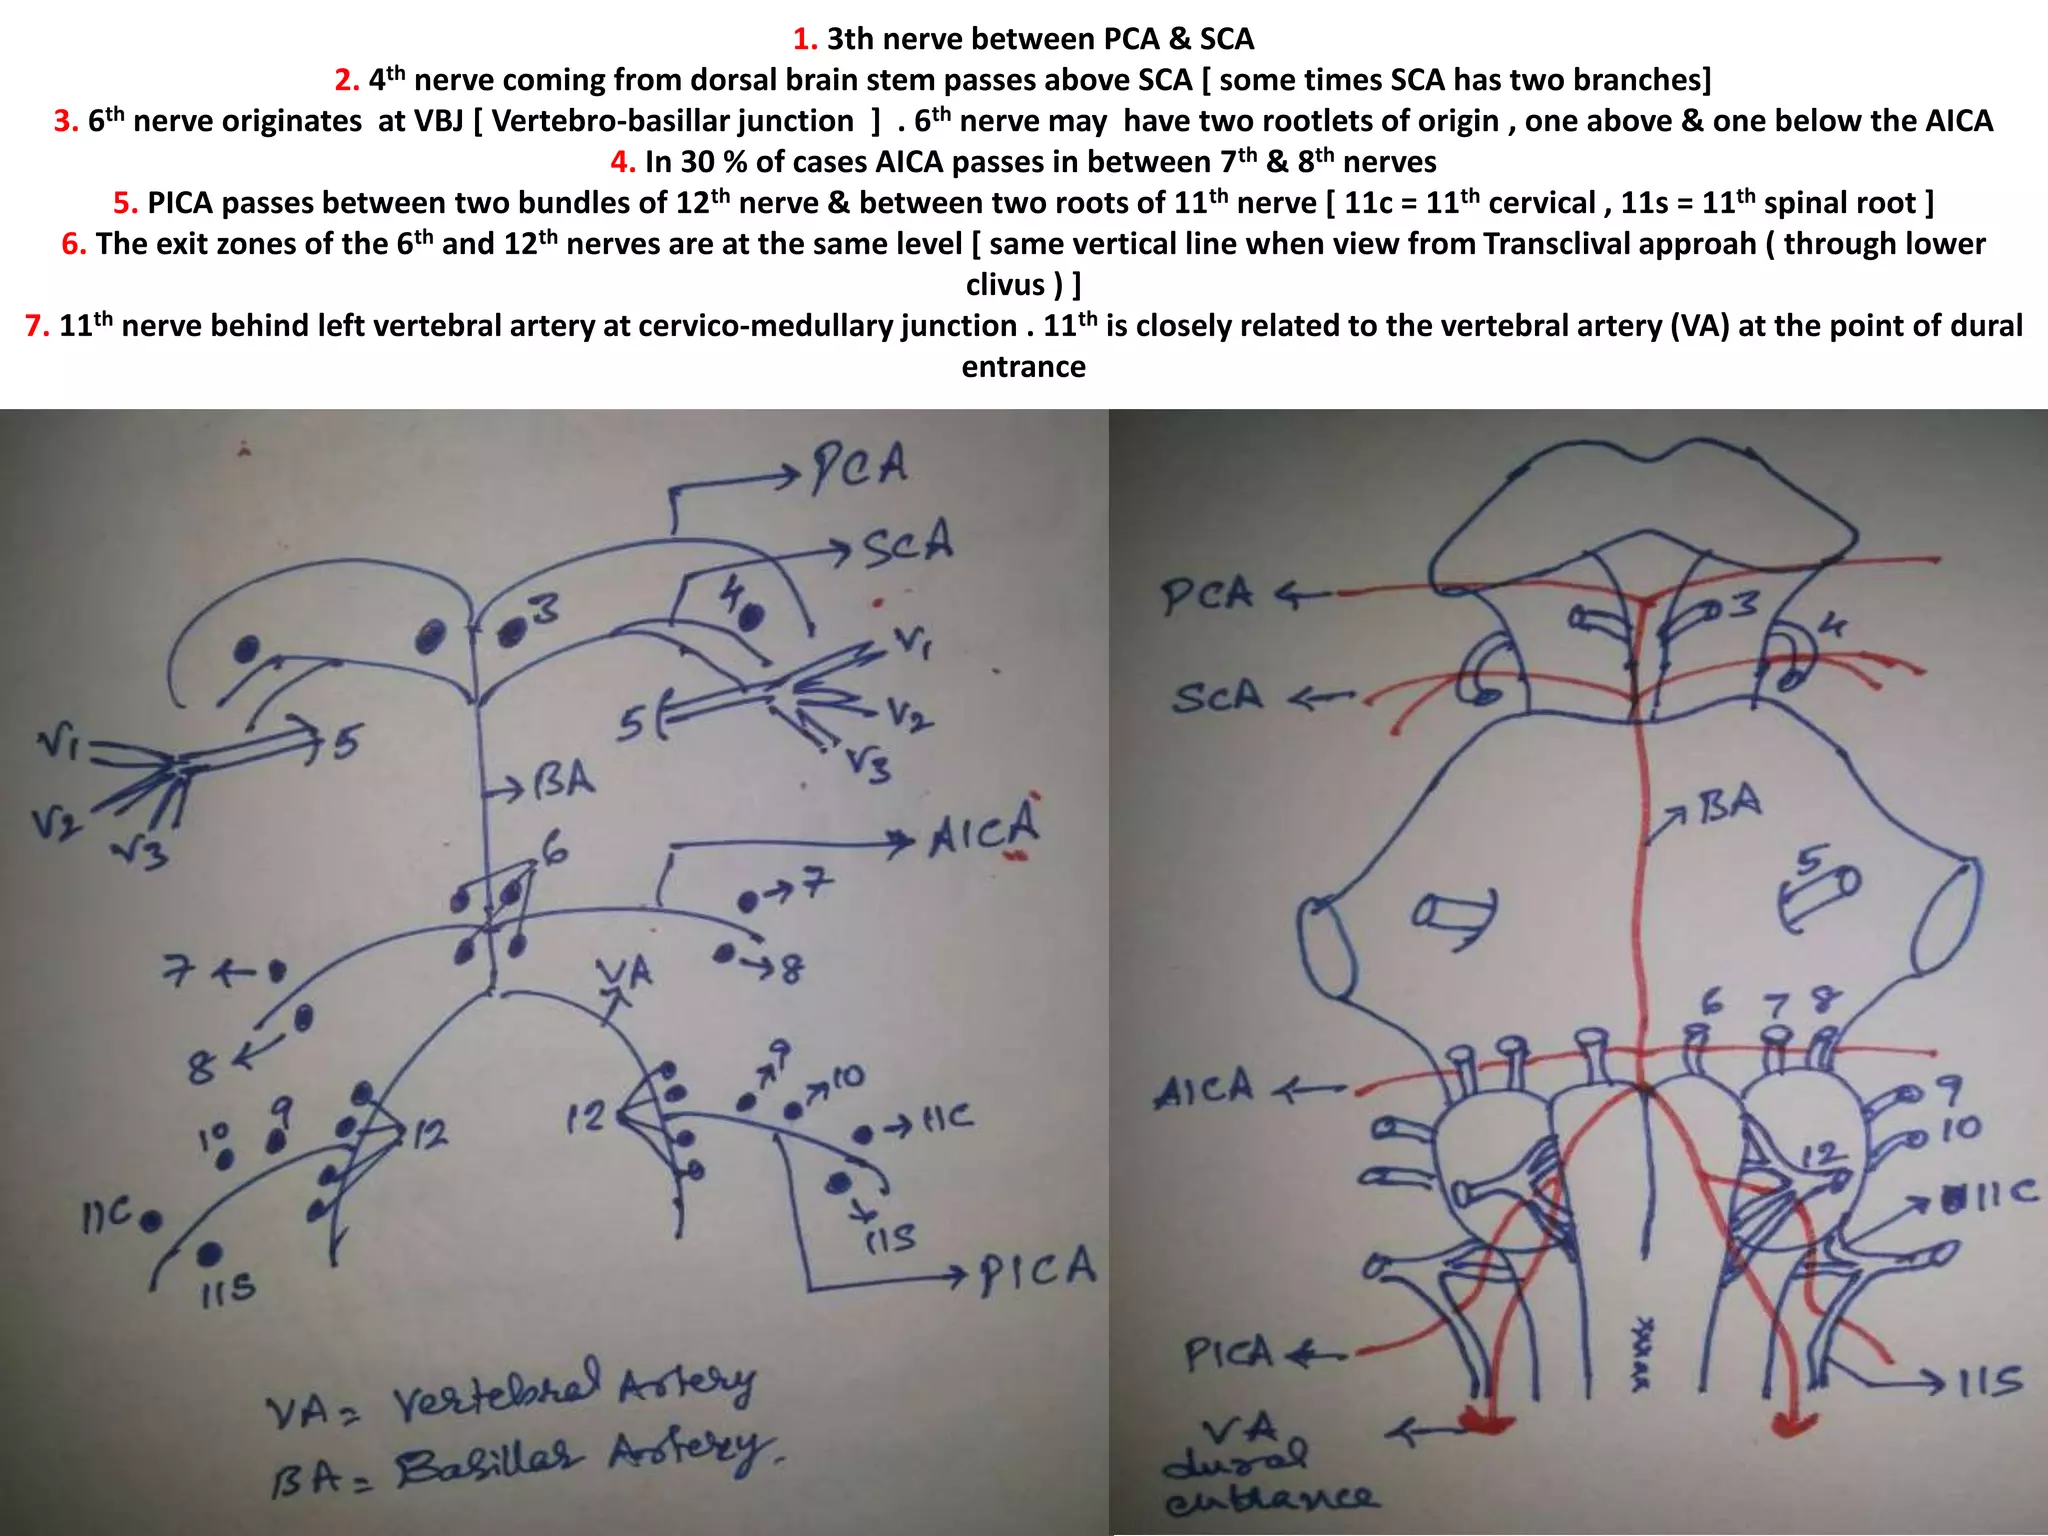 1. 3th nerve between PCA & SCA
2. 4th nerve coming from dorsal brain stem passes above SCA [ some times SCA has two branches]
3. 6th nerve originates at VBJ [ Vertebro-basillar junction ] . 6th nerve may have two rootlets of origin , one above & one below the AICA
4. In 30 % of cases AICA passes in between 7th & 8th nerves
5. PICA passes between two bundles of 12th nerve & between two roots of 11th nerve [ 11c = 11th cervical , 11s = 11th spinal root ]
6. The exit zones of the 6th and 12th nerves are at the same level [ same vertical line when view from Transclival approah ( through lower
clivus ) ]
7. 11th nerve behind left vertebral artery at cervico-medullary junction . 11th is closely related to the vertebral artery (VA) at the point of dural
entrance
PCA
SCA
3
4
V1
5
V2
V3
V1
5
V2
V3
BA
6
AICA
7
7
8
VA
8
9
10
12
11C
10
9
12
11C
11S
11S
PICA
VA = Vertebral Artery
BA = Basillar Artery.
PCA
3
4
SCA
BA
5
6 7 8
AICA
9
10
12
11C
PICA
11S
VA
dural
entrance